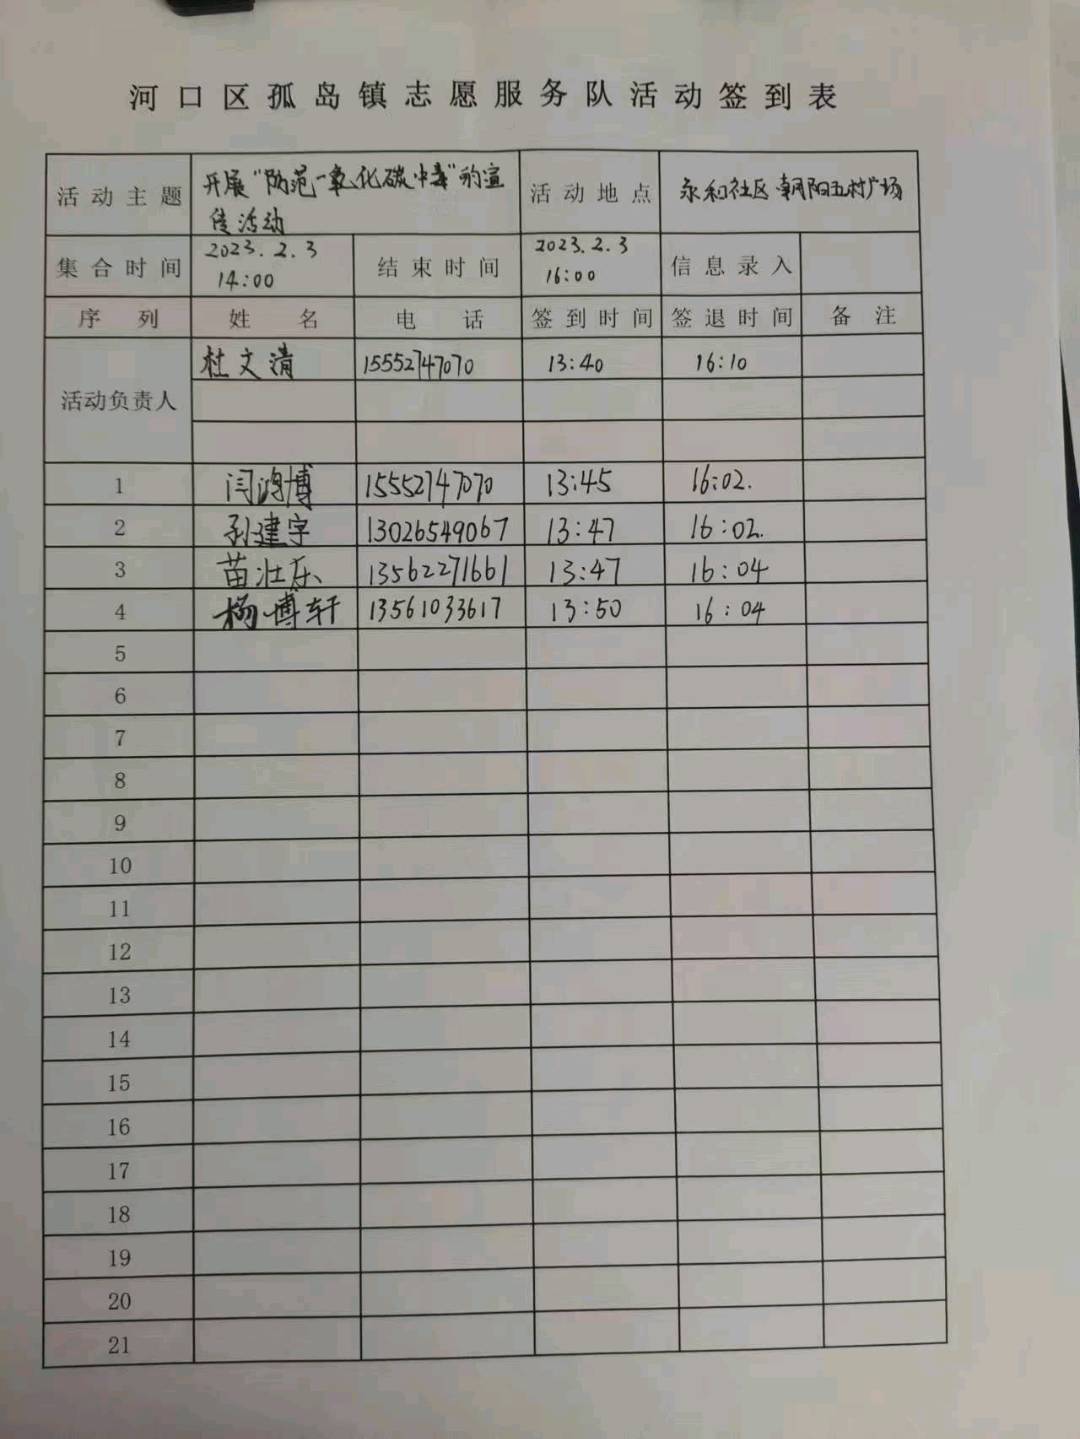 河口区孤岛镇志愿服务队活动签到表
活动主题 开展“防范一氧化碳中毒”的宣传活动 活动地点 永和社区朝阳五村广场
集合时间 2023.2.3 14:00 结束时间 2023.2.3 16:00 信息录入
序列 姓名 电话 签到时间 签退时间 备注
活动负责人 杜文清 15552747070 13:40 16:10
1 闫鸿博 15552747070 13:45 16:02.
2 孙建宇 13026549067 13:47 16:02.
3 苗壮乐 13562271661 13:47 16:04
4 杨博轩 13561033617 13:50 16:04
5
6
7
8
9
10
11
12
13
14
15
16
17
18
19
20
21